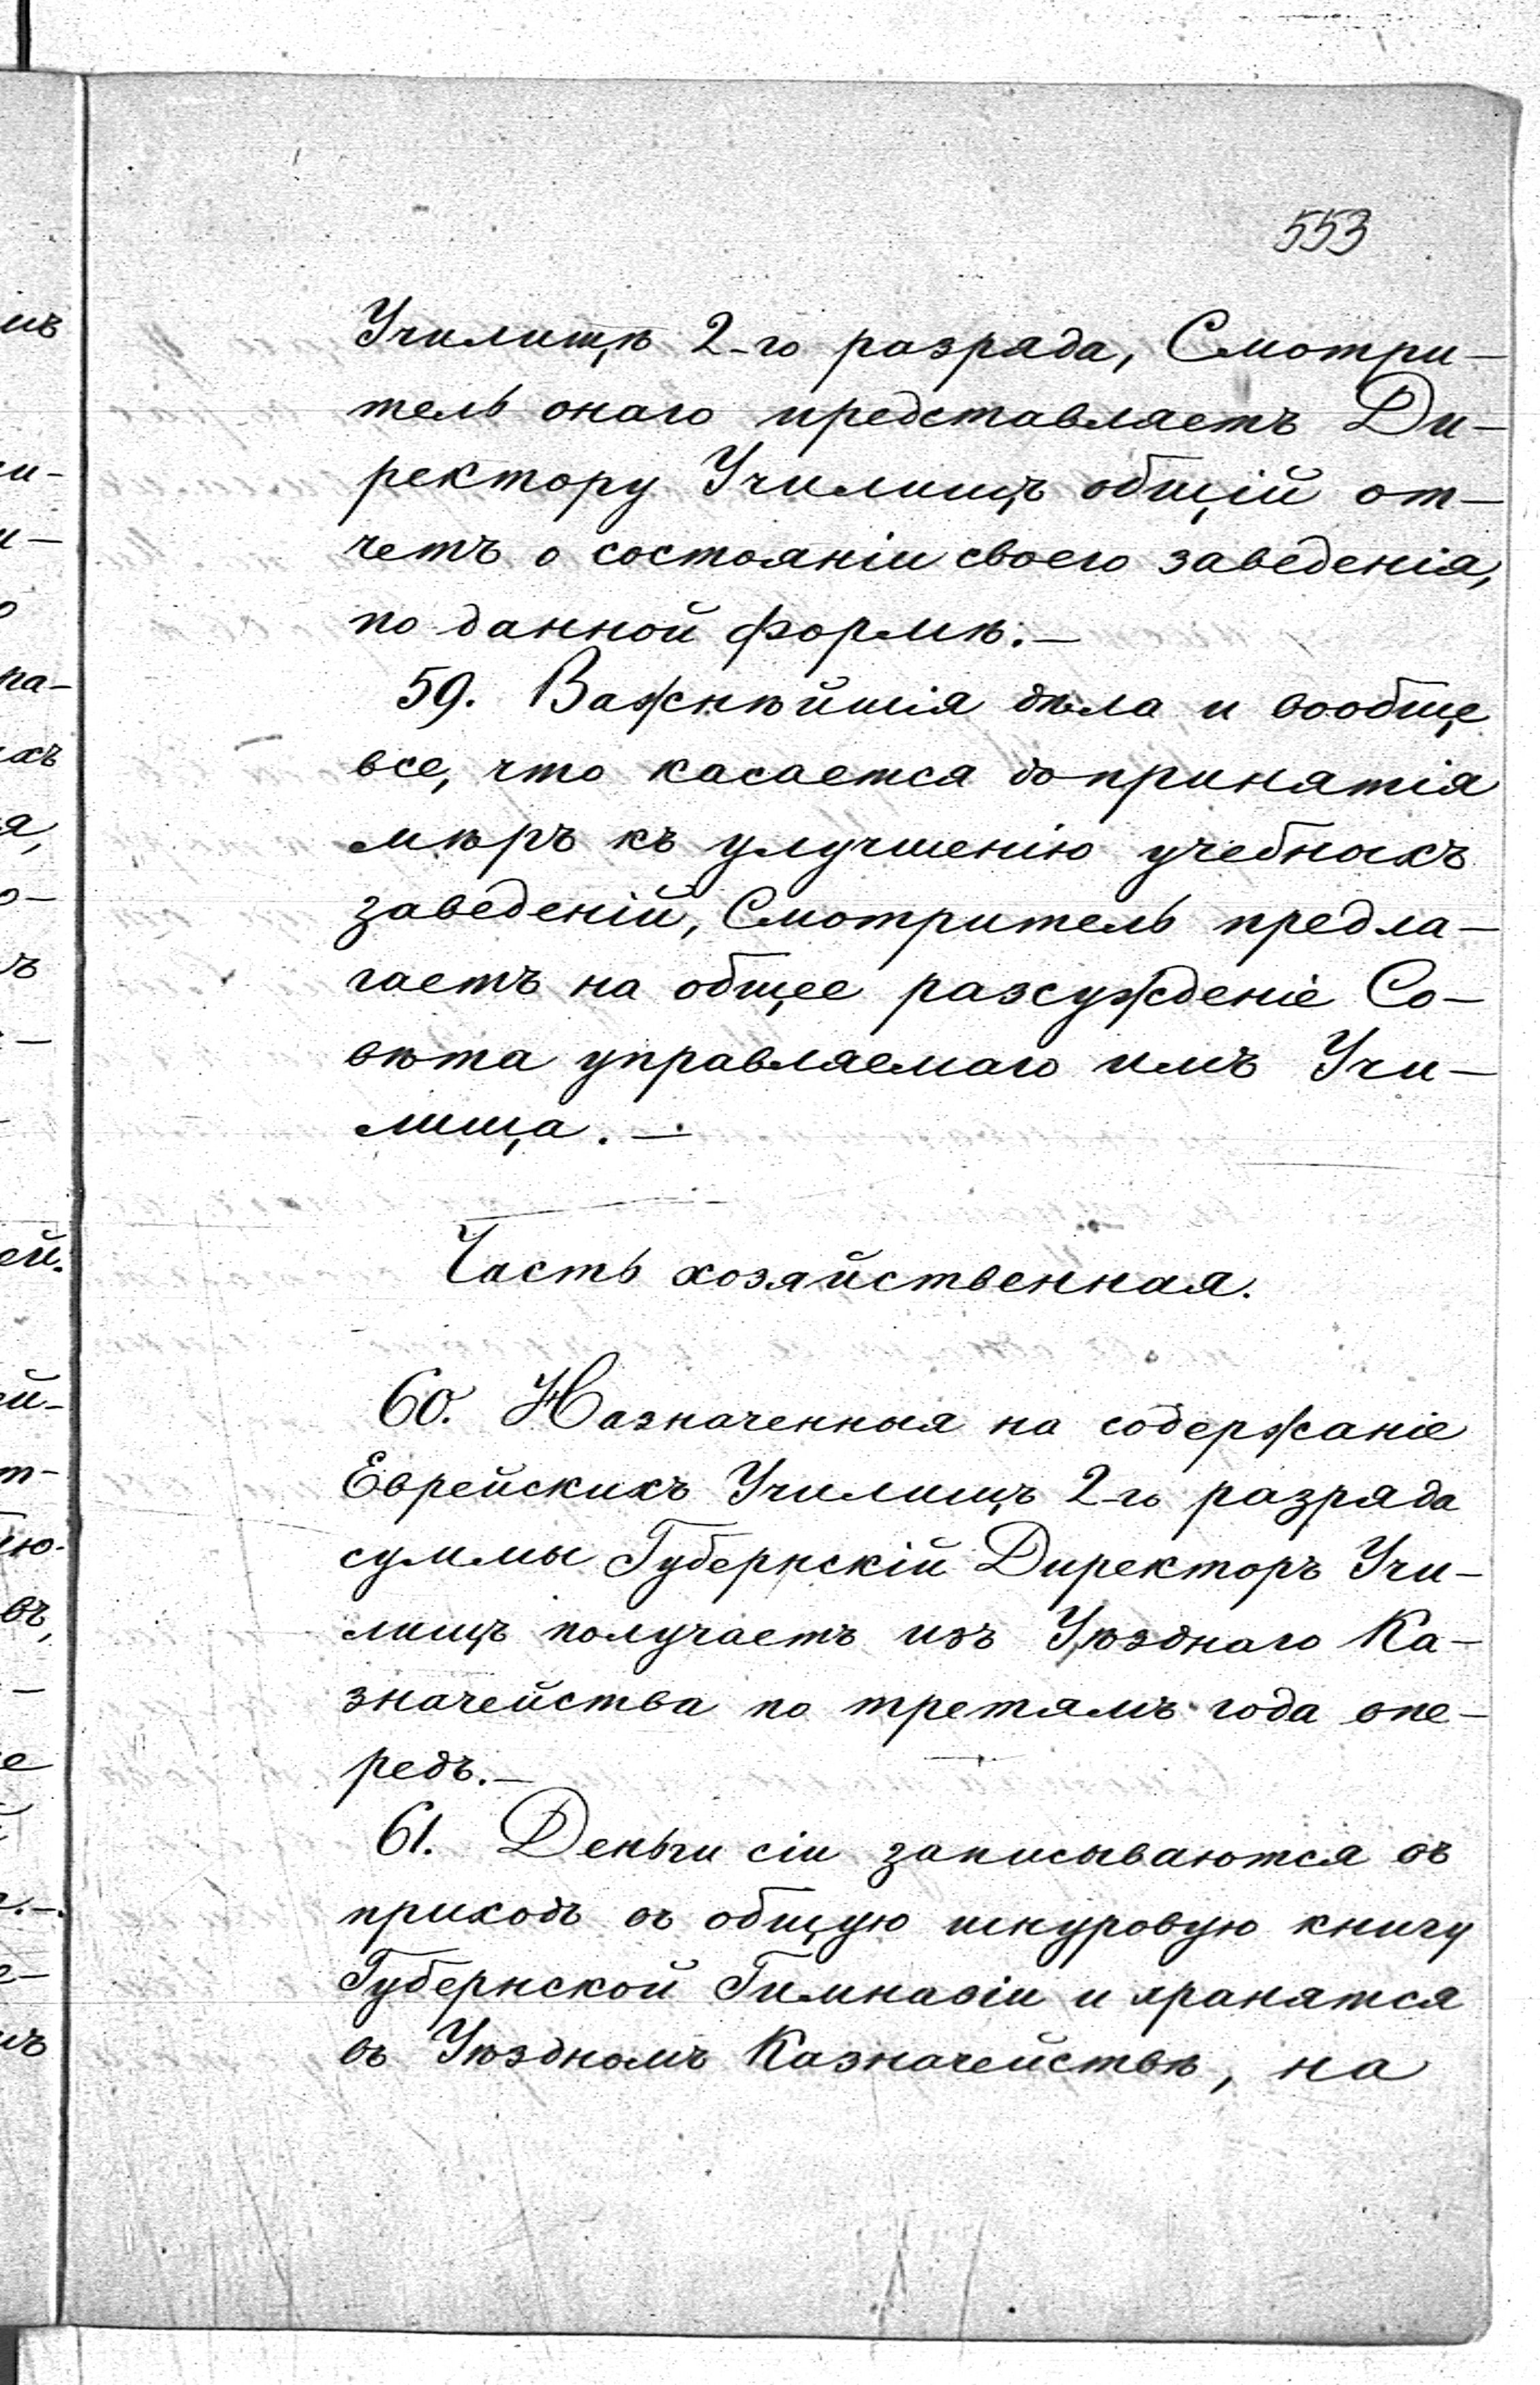 553
Училищѣ 2-го разряда, Смотри-
тель онаго представляетъ Ди-
ректору Училищъ общій от-
четъ о состояніи своего заведенія,
по данной формѣ.—
59. Важнѣйшія дѣла и вообще
все, что касается до принятія
мѣръ къ улучшенію учебныхъ
заведеній, Смотритель предла-
гаетъ на общее разсужденіе Со-
вѣта управляемаго имъ Учи-
лища.—
Часть хозяйственная.
60. Назначенныя на содержаніе
Еврейскихъ Училищъ 2-го разряда
суммы Губернскій Директоръ Учи-
лищъ получаетъ изъ Уѣзднаго Ка-
значейства по третямъ года впе-
редъ.—
61. Деньги сіи записываются въ
приходъ въ общую шнуровую книгу
Губернской Гимназіи и хранятся
въ Уѣздномъ Казначействѣ, на